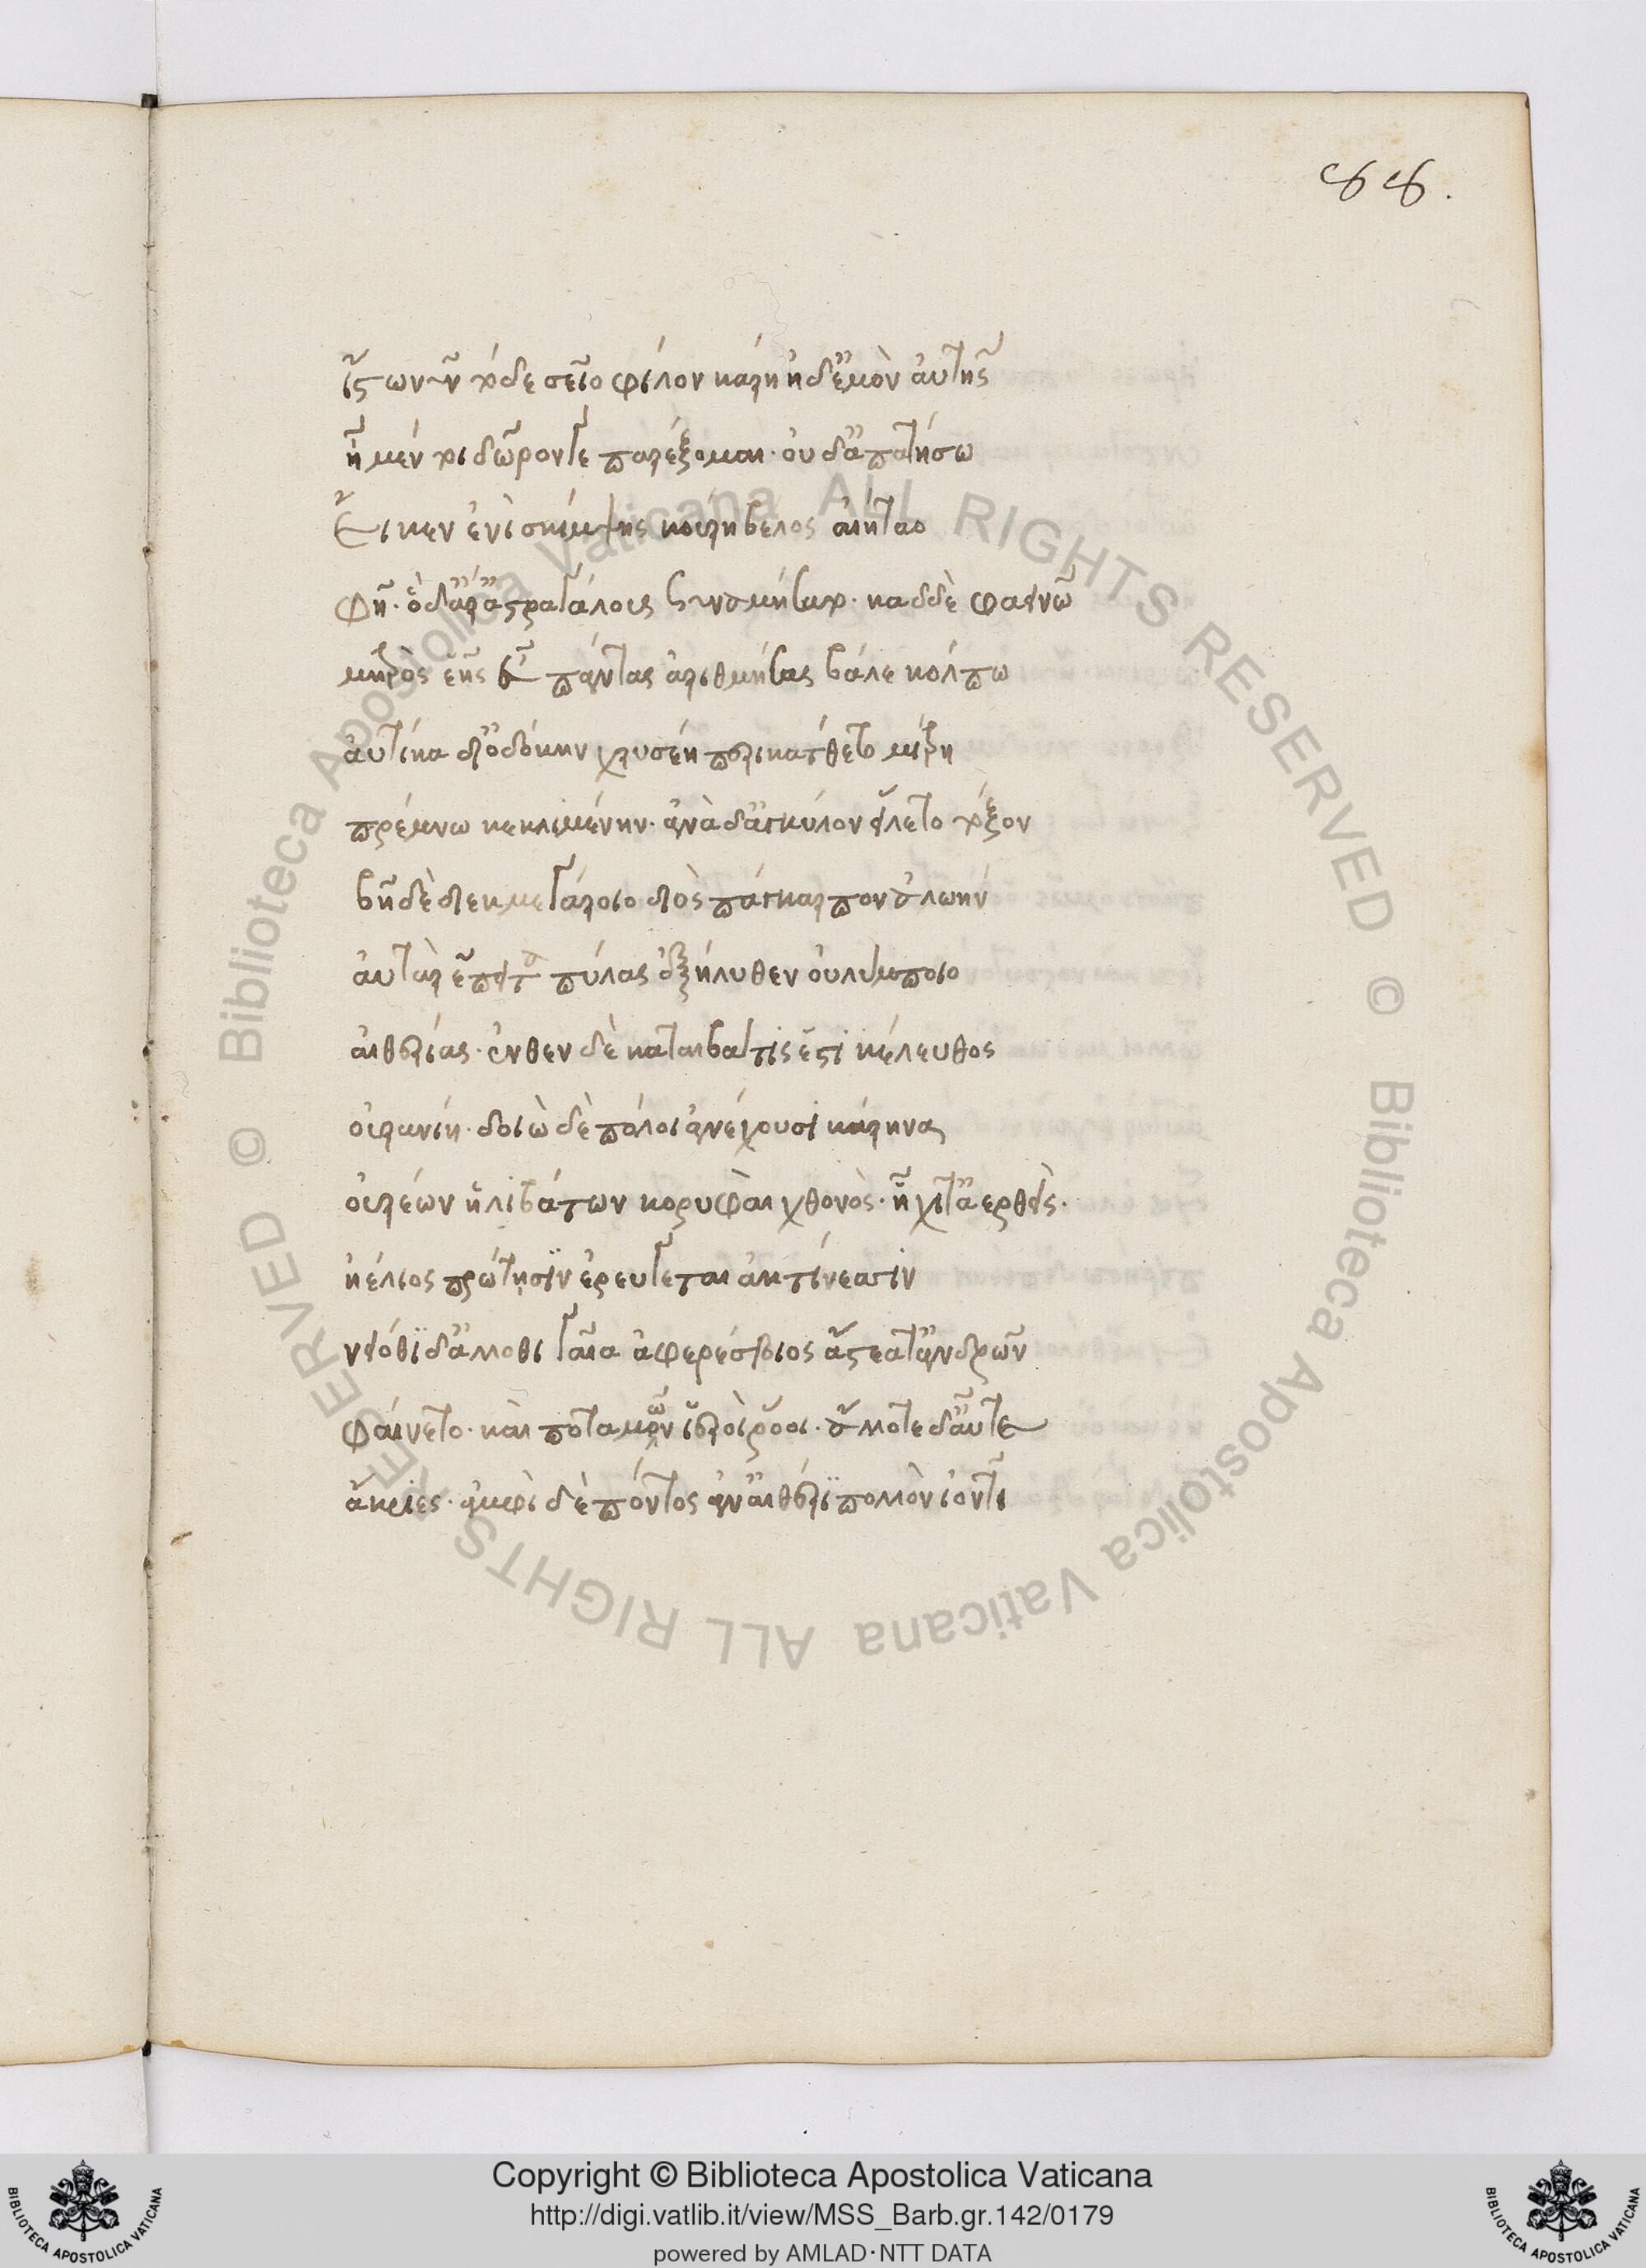 88.
ἴστω νῦν τόδε σεῖο φίλον κάρη ἠδ' ἐμὸν αὐτῆς
ἦ μέν τοι δῶρόν γε παρέξομαι· οὐδ' ἀπατήσω
εἴ κεν ἐνὶ σκίμψης κούρη βέλος αἰήταο
φῆ· ὁ δ' ἄρ' ἀστραγάλους συναμήσατο· καδδὲ φαεινῶ
μητρὸς ἑῆς εὖ πάντας ἀριθμήσας βάλε κόλπω
αὐτίκα δ' ἰοδόκην χρυσέη περικάτθετο μίτρη
πρέμνω κεκλιμένην· ἀνὰ δ' ἀγκύλον εἵλετο τόξον
βῆ δὲ διεκ μεγάροιο διὸς πάγκαρπον ἀλωήν
αὐτὰρ ἔπειτα πύλας ἐξήλυθεν οὐλύμποιο
αἰθερίας· ἔνθεν δὲ καταιβάτις ἐστὶ κέλευθος
οὐρανίη· δοιὼ δὲ πόλοι ἀνέχουσι κάρηνα
οὐρέων ἠλιβάτων κορυφαὶ χθονὸς· ἧχί τ' ἀερθεὶς·
ἠέλιος πρώτησιν ἐρεύγεται ἀκτίνεσσιν
νειόθι δ' ἄλλοθι γαῖα φερέσβιος ἄστεά τ' ἀνδρῶν
φαίνετο· καὶ ποταμῶν ἱεροὶ ῥόοι· ἄλλοτε δ' αὖτε
ἄκριες· ἀμφὶ δὲ πόντος ἀν' αἰθέρι πολλὸν ἰόντι
Copyright © Biblioteca Apostolica Vaticana
http://digi.vatlib.it/view/MSS_Barb.gr.142/0179
powered by AMLAD·NTT DATA
BIBLIOTECA APOSTOLICA VATICANA
BIBLIOTECA APOSTOLICA VATICANA
© Biblioteca Apostolica Vaticana ALL RIGHTS RESERVED © Biblioteca Apostolica Vaticana ALL RIGHTS RESERVED